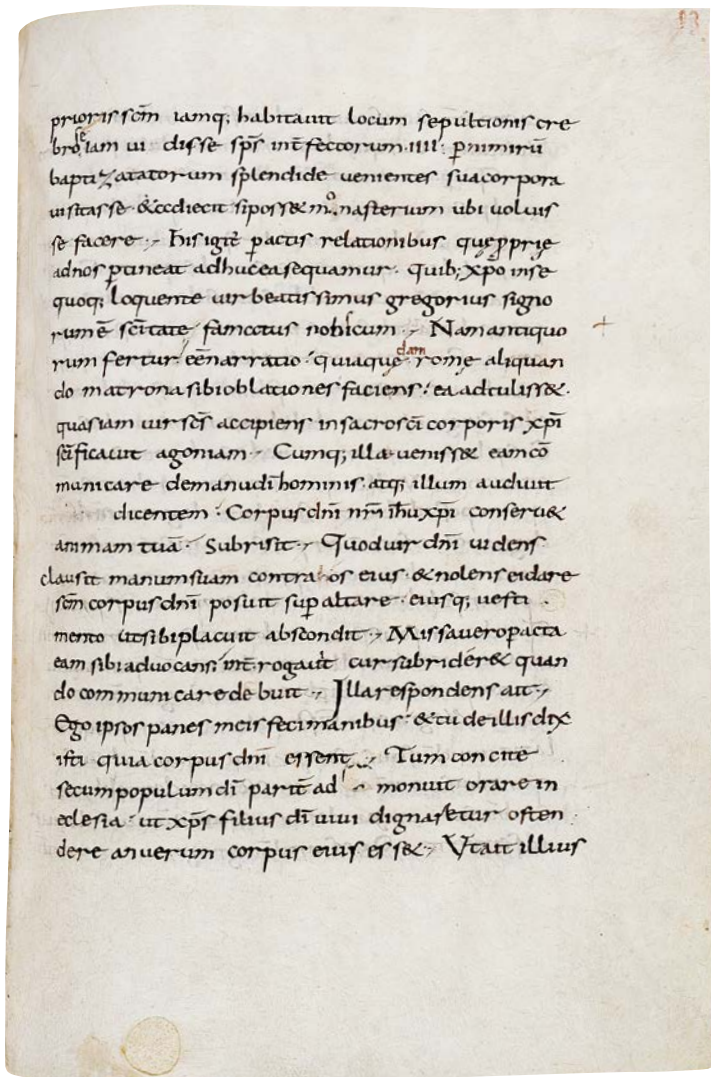 prioris scm̄ iamq; habitauit locum sepultionis cre
bro se iam ui disse sps̄ int̄fectorum · IIII · p̄ nimirū
baptizatatorum splendide uenientes sua corpora
uisitasse · & ccdiecit si poss& mo nasterium ubi uoluis
se facere ·, His igit̄ p̄actis relationibus quę p̄prię
ad nos p̄tineat adhuc ea sequamur · quib; xp̄o in se
quoq; loquente uir beatissimus gregorius signo
rum ē sc̄itate famotus nobiscum ·, Nam antiquo
rum fertur eē narratio · quia quędam romę aliquan
do matrona sibi oblationes faciens · ea adtuliss& ·
quas iam uir scs̄ accipiens in sacrosc̄i corporis xp̄i
sc̄ificauit agoniam ·, Cumq; illa uenisset& eam cō
municare de manu dī hominis · atq; illum audiuit
dicentem · Corpus dn̄i nr̄i ih̄u xp̄i conseru&
animam tuā · Subrisit ·, Quod uir dn̄i uidens
clausit manum suam contra os eius · & nolens ei dare
scm̄ corpus dn̄i posuit sup altare · eiusq; uesti
mento ut sibi placuit abscondit ·, Missa uero p̄acta
eam sibi aduocans · int̄rogauit cur subrider& quan
do communicare debuit ·, Illa respondens ait ·,
Ego ipsos panes meis feci manibus · & tu de illis dix
isti quia corpus dn̄i essent ·, Tum concite
secum populum dī parit̄ ad monuit orare in
eclesia · ut xp̄s filius dī uiui dignaretur osten
dere an uerum corpus eius ess& ·, Ut ait illius